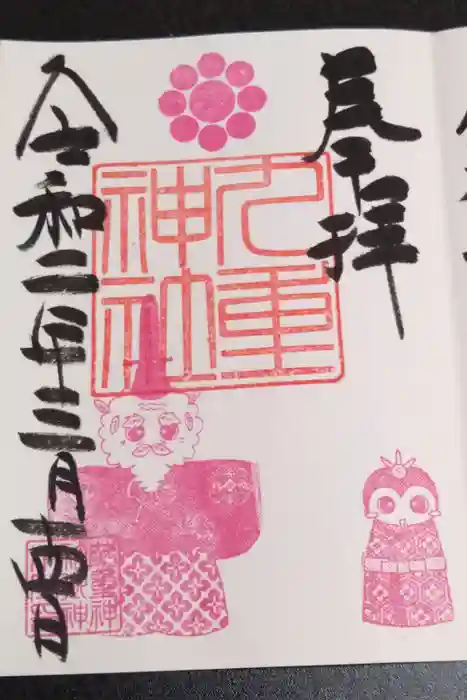 奉拝
九重
神社
令和二年三月十四日